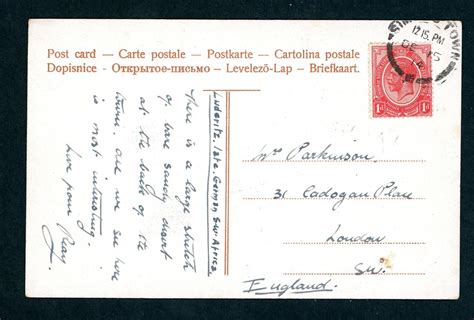 Post card – Carte postale – Postkarte – Cartolina postale
Dopisnice – Открытое-письмо – Levelező-Lap – Briefkaart.
SIMON'S TOWN
12 15. PM
DE 15
1d 1d
Luderitz, late German S.W. Africa.
There is a large stretch
of bare sandy desert
at the back of the
town. and we see here
is most interesting.
Love from
Mrs Parkinson.
31 Cadogan Place
London
S.W.
England.